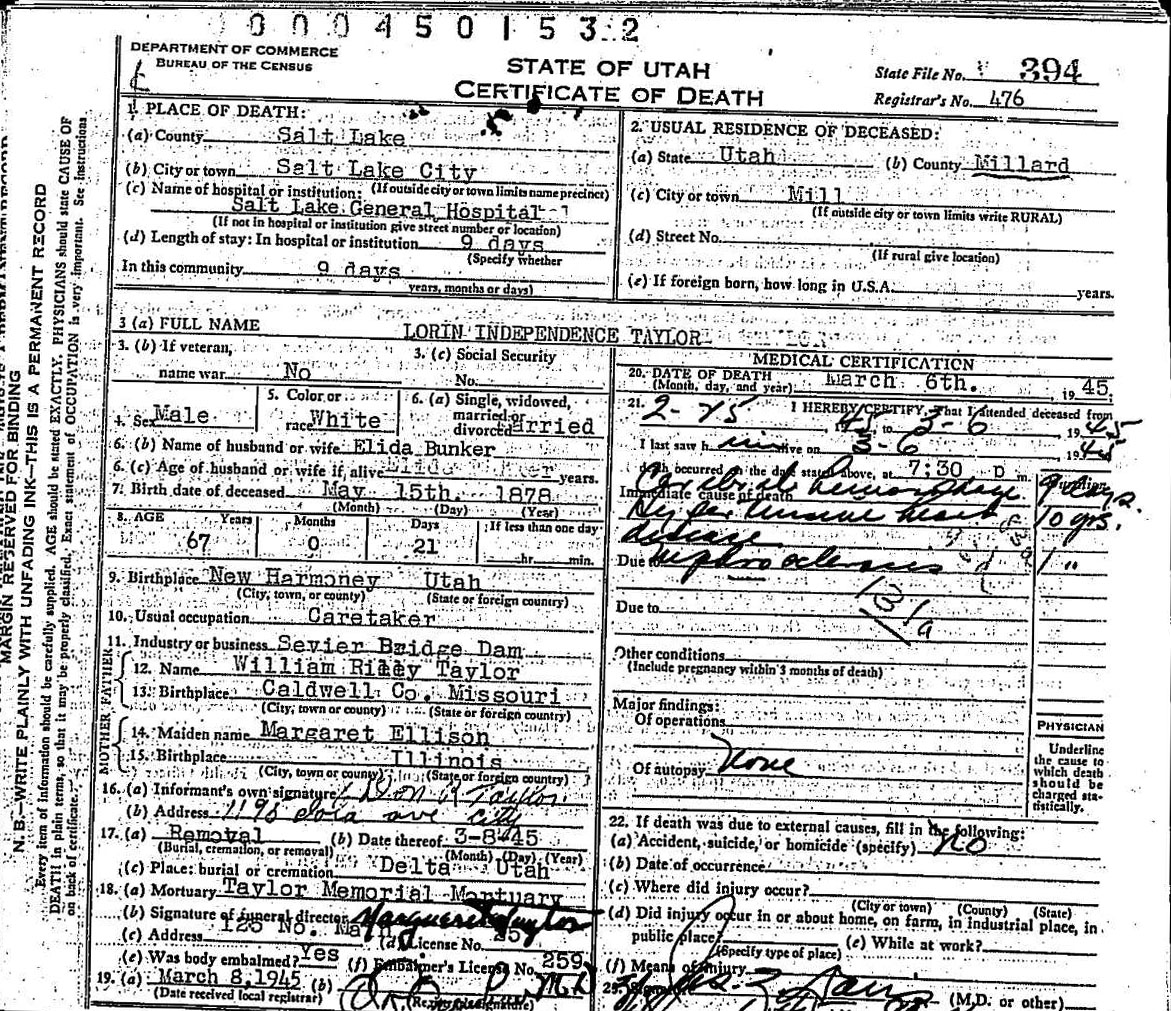 000450153 2
DEPARTMENT OF COMMERCE
BUREAU OF THE CENSUS
STATE OF UTAH
CERTIFICATE OF DEATH
State File No. 394
Registrar's No. 476
1. PLACE OF DEATH:
(a) County Salt Lake
(b) City or town Salt Lake City
(c) Name of hospital or institution: (If outside city or town limits name precinct)
Salt Lake General Hospital
(If not in hospital or institution give street number or location)
(d) Length of stay: In hospital or institution 9 days
(Specify whether
In this community 9 days
years, months or days)
2. USUAL RESIDENCE OF DECEASED:
(a) State Utah (b) County Millard
(c) City or town Mill
(If outside city or town limits write RURAL)
(d) Street No.
(If rural give location)
(e) If foreign born, how long in U.S.A. years.
3 (a) FULL NAME LORIN INDEPENDENCE TAYLOR
3. (b) If veteran, name war No
3. (c) Social Security No.
4. Sex Male
5. Color or race White
6. (a) Single, widowed, married or divorced Married
6. (b) Name of husband or wife Elida Bunker
6. (c) Age of husband or wife if alive years.
7. Birth date of deceased May 15th. 1878
(Month) (Day) (Year)
8. AGE Years Months Days If less than one day
67 0 21 hr. min.
9. Birthplace New Harmoney Utah
(City, town, or county) (State or foreign country)
10. Usual occupation Caretaker
11. Industry or business Sevier Bridge Dam
FATHER
12. Name William Riley Taylor
13. Birthplace Caldwell Co. Missouri
(City, town or county) (State or foreign country)
MOTHER
14. Maiden name Margaret Ellison
15. Birthplace Illinois
(City, town or county) (State or foreign country)
16. (a) Informant's own signature Don R Taylor
(b) Address 1198 ave City
17. (a) Removal (b) Date thereof 3-8-45
(Burial, cremation, or removal) (Month) (Day) (Year)
(c) Place: burial or cremation Delta Utah
18. (a) Mortuary Taylor Memorial Mortuary
(b) Signature of funeral director Marguerite Taylor
(c) Address 125 No. Main (d) License No. 25
(e) Was body embalmed? Yes (f) Embalmer's License No. 259
19. (a) March 8, 1945 (b) M.D.
(Date received local registrar) (Registrar's signature)
MEDICAL CERTIFICATION
20. DATE OF DEATH
(Month, day, and year) March 6th. 1945
21. I HEREBY CERTIFY, That I attended deceased from
2-25 45 to 3-6 1945
I last saw him alive on 3-6 1945
death occurred on the date stated above, at 7:30 p m.
Duration
Immediate cause of death Cerebral hemorrhage 9 days.
Hypertensive heart disease 10 yrs.
Due to nephrosclerosis 1 "
131a
Due to
Other conditions
(Include pregnancy within 3 months of death)
Major findings:
Of operations
Of autopsy None
PHYSICIAN
Underline the cause to which death should be charged statistically.
22. If death was due to external causes, fill in the following:
(a) Accident, suicide, or homicide (specify) No
(b) Date of occurrence
(c) Where did injury occur?
(City or town) (County) (State)
(d) Did injury occur in or about home, on farm, in industrial place, in
public place? (e) While at work?
(Specify type of place)
(f) Means of injury
23. (M.D. or other)
MARGIN RESERVED FOR BINDING
N. B.—WRITE PLAINLY WITH UNFADING INK—THIS IS A PERMANENT RECORD
Every item of information should be carefully supplied. AGE should be stated EXACTLY. PHYSICIANS should state CAUSE OF
DEATH in plain terms, so that it may be properly classified. Exact statement of OCCUPATION is very important. See instructions
on back of certificate.